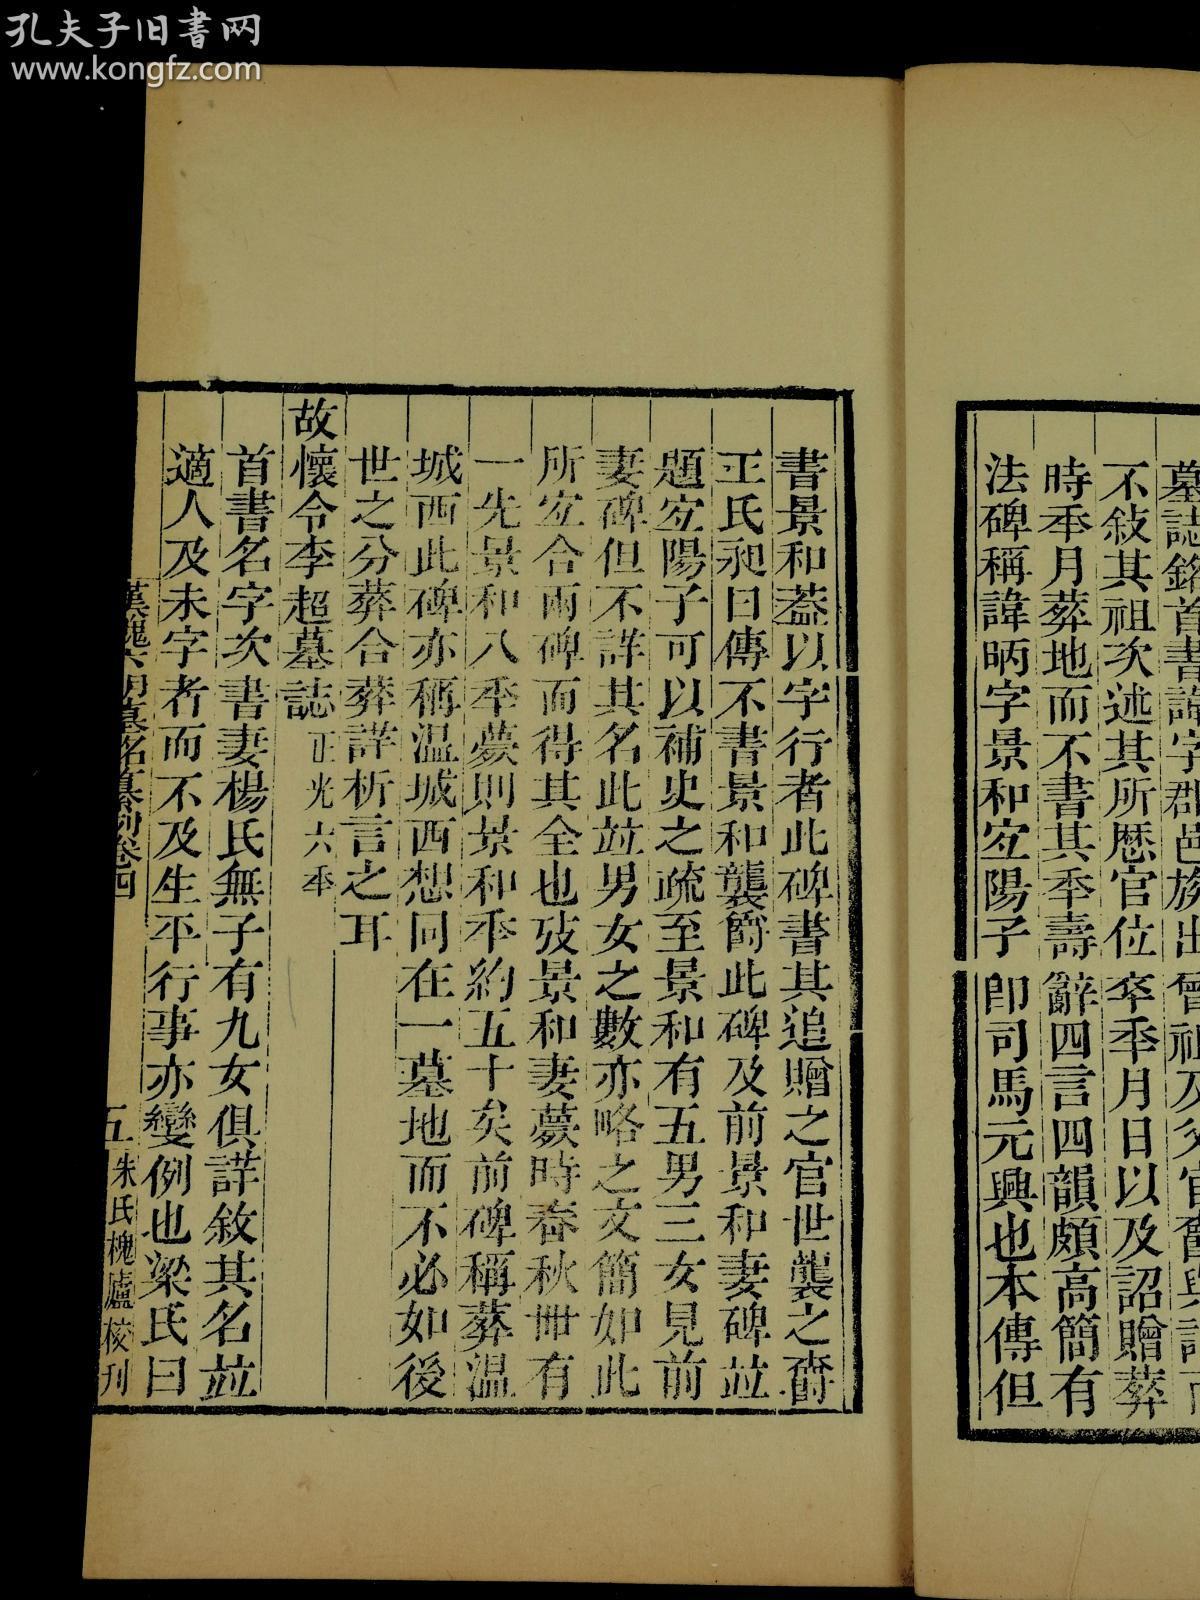 孔夫子旧书网
www.kongfz.com
墓誌銘首書諱字郡邑族出曾祖及父官爵與諱而
不敍其祖次述其所歷官位卒秊月日以及詔贈葬
時秊月葬地而不書其秊壽辭四言四韻頗高簡有
法碑稱諱昞字景和宐陽子卽司馬元興也本傳但
書景和葢以字行者此碑書其追贈之官世襲之爵
王氏昶曰傳不書景和襲爵此碑及前景和妻碑竝
題宐陽子可以補史之疏至景和有五男三女見前
妻碑但不詳其名此竝男女之數亦略之文簡如此
所宐合兩碑而得其全也攷景和妻薨時春秋卌有
一先景和八秊薨則景和秊約五十矣前碑稱葬温
城西此碑亦稱温城西想同在一墓地而不必如後
世之分葬合葬詳析言之耳
故懷令李超墓誌 正光六秊
首書名字次書妻楊氏無子有九女俱詳敘其名竝
適人及未字者而不及生平行事亦變例也梁氏曰
漢魏六朝墓銘纂例卷四
五
朱氏槐廬校刊